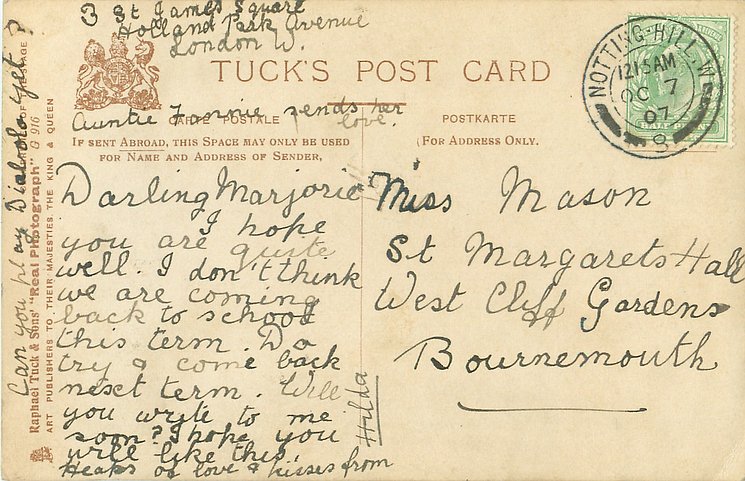 3 St James Square
Holland Park Avenue
London W.
TUCK'S POST CARD
Auntie Fannie sends her
love.
CARTE POSTALE
POSTKARTE
IF SENT ABROAD, THIS SPACE MAY ONLY BE USED
FOR NAME AND ADDRESS OF SENDER,
(FOR ADDRESS ONLY.
Darling Marjorie
I hope
you are quite
well. I don't think
we are coming
back to school
this term. Do
try & come back
next term. Will
you write to me
soon? I hope you
will like this.
Heaps of love & kisses from
Hilda
Can you play Diabolo yet?
Miss Mason
St Margarets Hall
West Cliff Gardens
Bournemouth
NOTTING-HILL.W
12.15AM
OC 7
07
8
Raphael Tuck & Sons' "Real Photograph" G 916
ART PUBLISHERS TO THEIR MAJESTIES THE KING & QUEEN